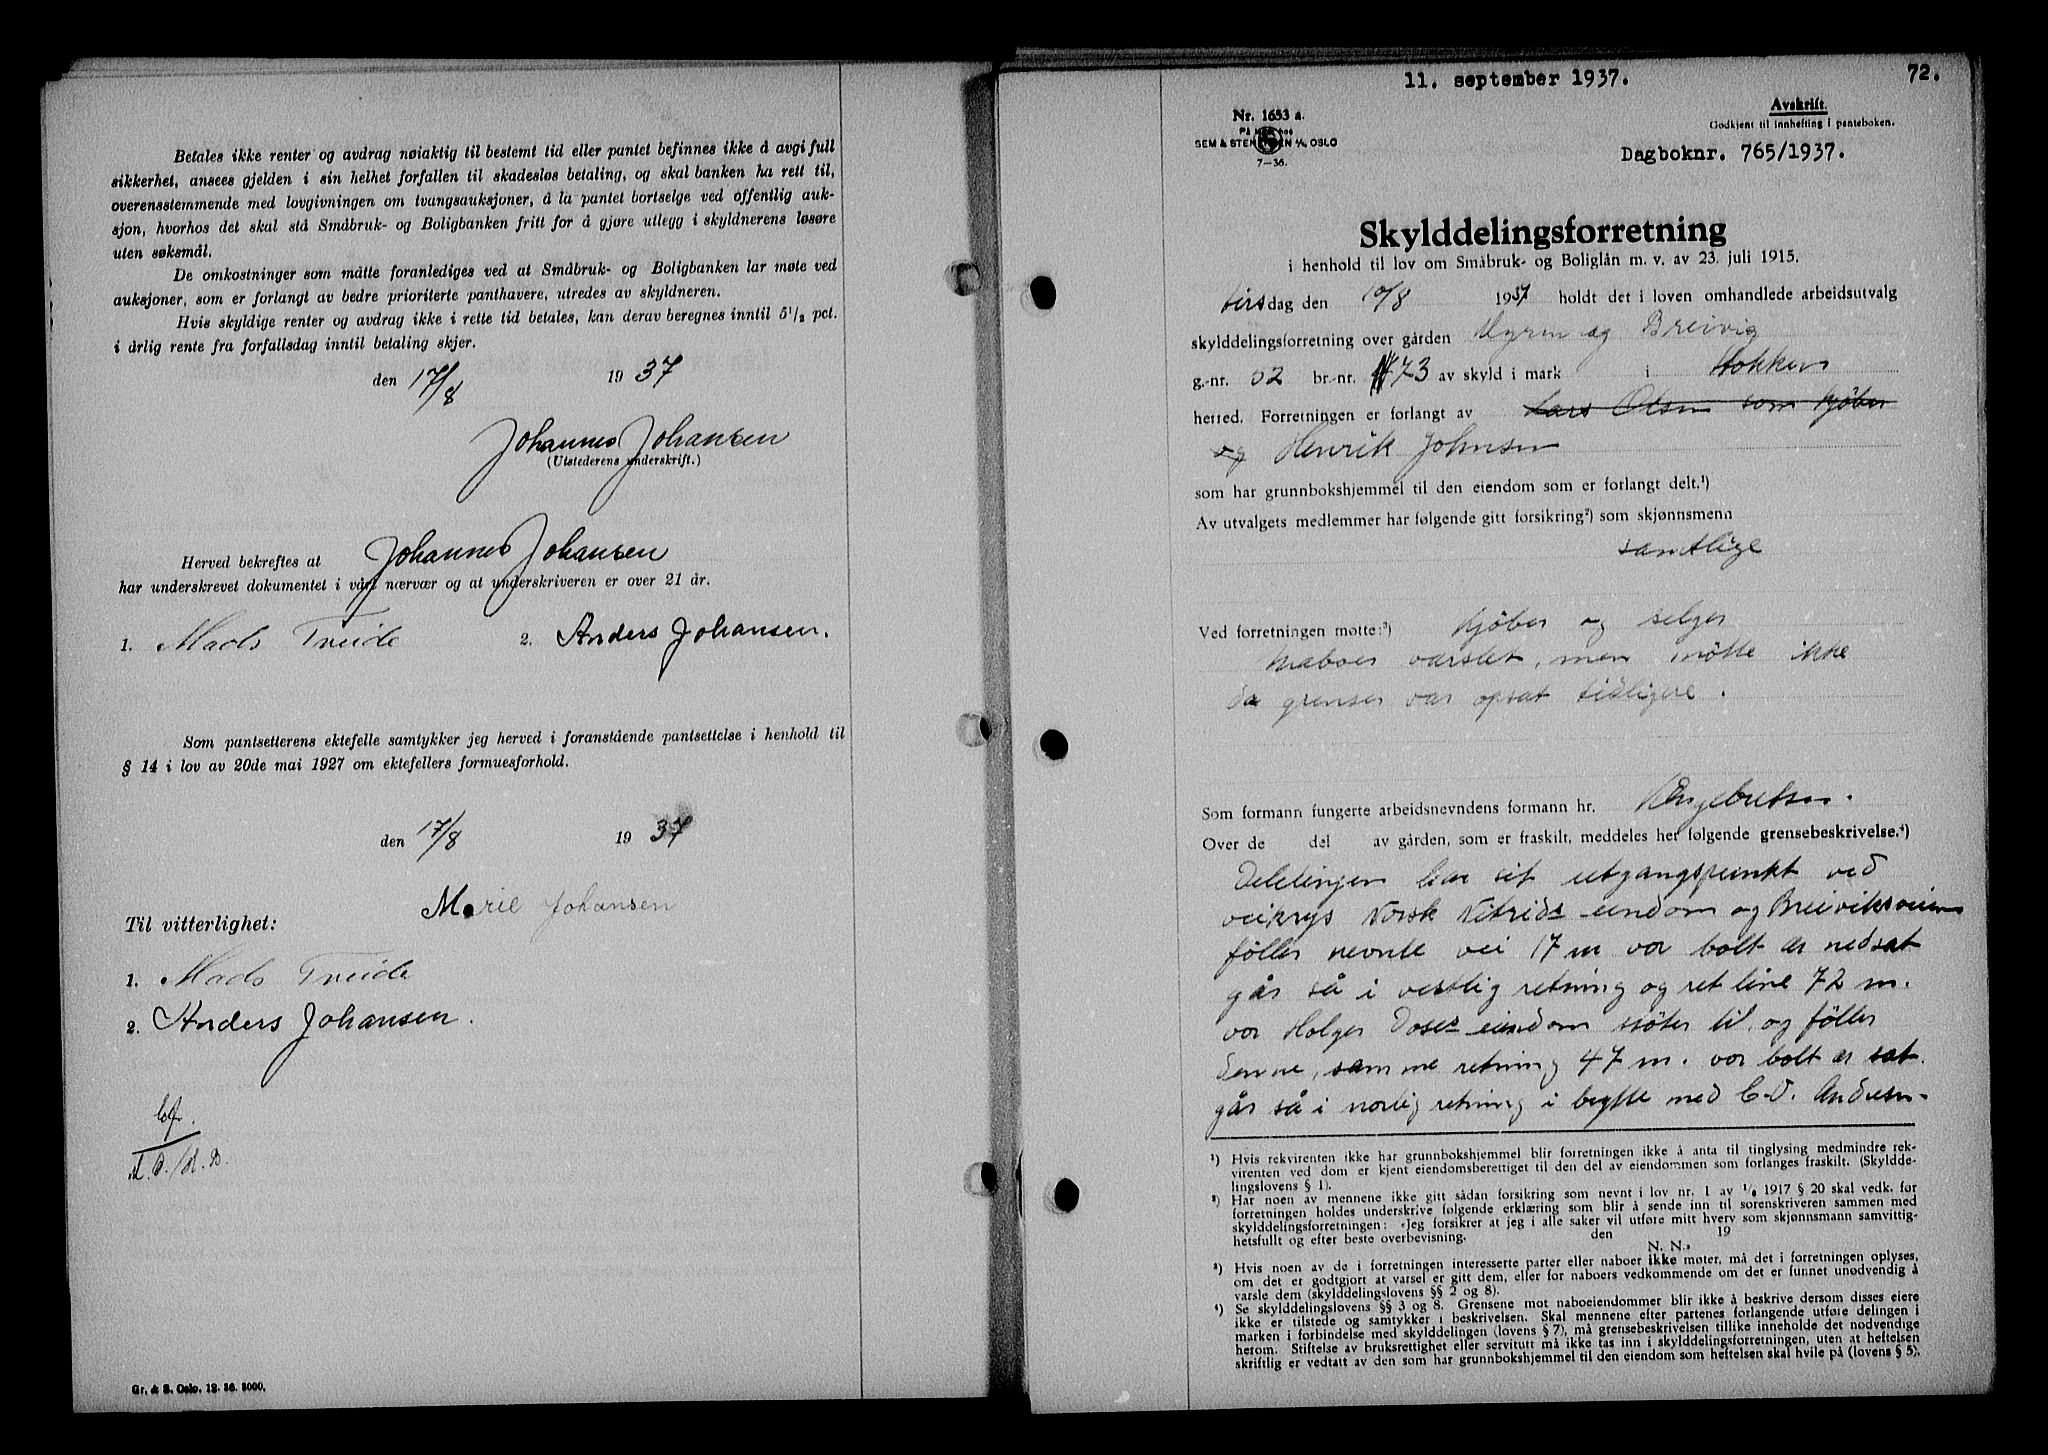 Betales ikke renter og avdrag nøiaktig til bestemt tid eller pantet befinnes ikke å avgi full
sikkerhet, ansees gjelden i sin helhet forfallen til skadesløs betaling, og skal banken ha rett til,
overensstemmende med lovgivningen om tvangsauksjoner, å la pantet bortselge ved offentlig auk-
sjon, hvorhos det skal stå Småbruk- og Boligbanken fritt for å gjøre utlegg i skyldnerens løsøre
uten søksmål.
De omkostninger som måtte foranlediges ved at Småbruk- og Boligbanken lar møte ved
auksjoner, som er forlangt av bedre prioriterte panthavere, utredes av skyldneren.
Hvis skyldige renter og avdrag ikke i rette tid betales, kan derav beregnes inntil 5 1/2 pct.
i årlig rente fra forfallsdag inntil betaling skjer.
den 17/8 1937
Johannes Johansen
(Utstederens underskrift.)
Herved bekreftes at Johannes Johansen
har underskrevet dokumentet i vårt nærvær og at underskriveren er over 21 år.
1. Mads Treide 2. Anders Johansen.
Som pantsetterens ektefelle samtykker jeg herved i foranstående pantsettelse i henhold til
§ 14 i lov av 20de mai 1927 om ektefellers formuesforhold.
den 17/8 1937
Marie Johansen
Til vitterlighet:
1. Mads Treide
2. Anders Johansen.
Gr. & S. Oslo. 12. 36. 3000.
11. september 1937. 72.
Nr. 1653 a.
GEM & STEN EN A/S OSLO
7-36.
Avskrift.
Godkjent til innhefting i panteboken.
Dagboknr. 765/1937.
Skylddelingsforretning
i henhold til lov om Småbruk- og Boliglån m. v. av 23. juli 1915.
tirsdag den 10/8 1937 holdt det i loven omhandlede arbeidsutvalg
skylddelingsforretning over gården Myren og Breivig
g.-nr. 52 br.-nr. 73 av skyld i mark i
herred. Forretningen er forlangt av Lars Olsen som kjøber
og Henrik Johnsen
som har grunnbokshjemmel til den eiendom som er forlangt delt.¹)
Av utvalgets medlemmer har følgende gitt forsikring²) som skjønnsmenn
samtlige
Ved forretningen møtte:³) kjøber og selger
naboer varslet, men møtte ikke
da grenser var opsat tidligere.
Som formann fungerte arbeidsnevndens formann hr. Engebretsen.
Over de del av gården, som er fraskilt, meddeles her følgende grensebeskrivelse.⁴)
Delelinjen har sit utgangspunkt ved
veikrys Norsk Nitrids eiendom og Breiviksveien
føller nevnte vei 17 m vor bolt er nedsat
går så i vestlig retning og ret line 72 m.
vor Holger Doser eiendom støter til, og føller
denne, samme retning 47 m. vor bolt er sat.
går så i norlig retning i bytte med C. D. Andresen-
¹) Hvis rekvirenten ikke har grunnbokshjemmel blir forretningen ikke å anta til tinglysing medmindre rek-
virenten ved dom er kjent eiendomsberettiget til den del av eiendommen som forlanges fraskilt. (Skyldde-
lingslovens § 1).
²) Har noen av mennene ikke gitt sådan forsikring som nevnt i lov nr. 1 av 1/6 1917 § 20 skal vedk. før
forretningen holdes underskrive følgende erklæring som blir å sende inn til sorenskriveren sammen med
skylddelingsforretningen: «Jeg forsikrer at jeg i alle saker vil utføre mitt hverv som skjønnsmann samvittig-
hetsfullt og efter beste overbevisning. den 19
N. N.»
³) Hvis noen av de i forretningen interesserte parter eller naboer ikke møter, må det i forretningen oplyses,
om det er godtgjort at varsel er gitt dem, eller for naboers vedkommende om det er funnet unødvendig å
varsle dem (skylddelingslovens §§ 2 og 8).
⁴) Se skylddelingslovens §§ 3 og 8. Grensene mot naboeiendommer blir ikke å beskrive dersom disses eiere
ikke er tilstede og samtykker i beskrivelsen. Skal mennene efter partenes forlangende utføre delingen i
marken i forbindelse med skylddelingen (lovens § 7), må grensebeskrivelsen tillike inneholde det nødvendige
herom. Stiftelse av bruksrettighet eller servitutt må ikke tas inn i skylddelingsforretningen, uten at heftelsen
skriftlig er vedtatt av den som har grunnbokshjemmel til den eiendom som heftelsen skal hvile på (lovens § 5).